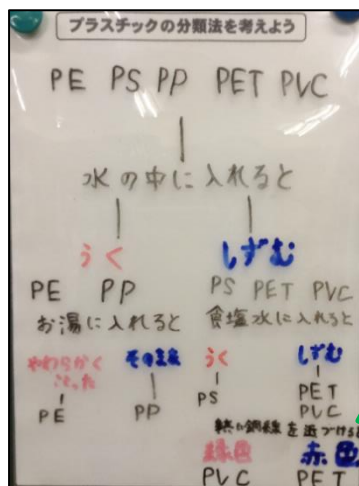 プラスチックの分類法を考えよう
PE PS PP PET PVC
水の中に入れると
うく しずむ
PE PP PS PET PVC
お湯に入れると 食塩水に入れると
やわらかく そのまま うく しずむ
なった
PE PP PS PET
PVC
熱い銅線を近づけると
緑色 赤色
PVC PET